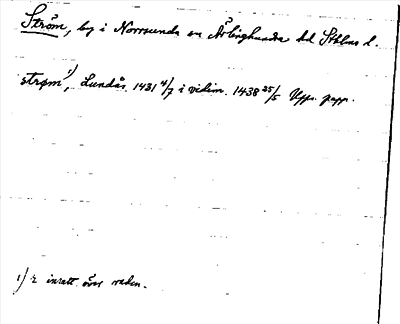 Ström, by i Norrsunda sn Ärlinghundra hd Sthlms l.
strøm 1), Lundås. 1431 4/7 i vidim. 1438 25/5 Upps. papp.
1) r insatt över raden.